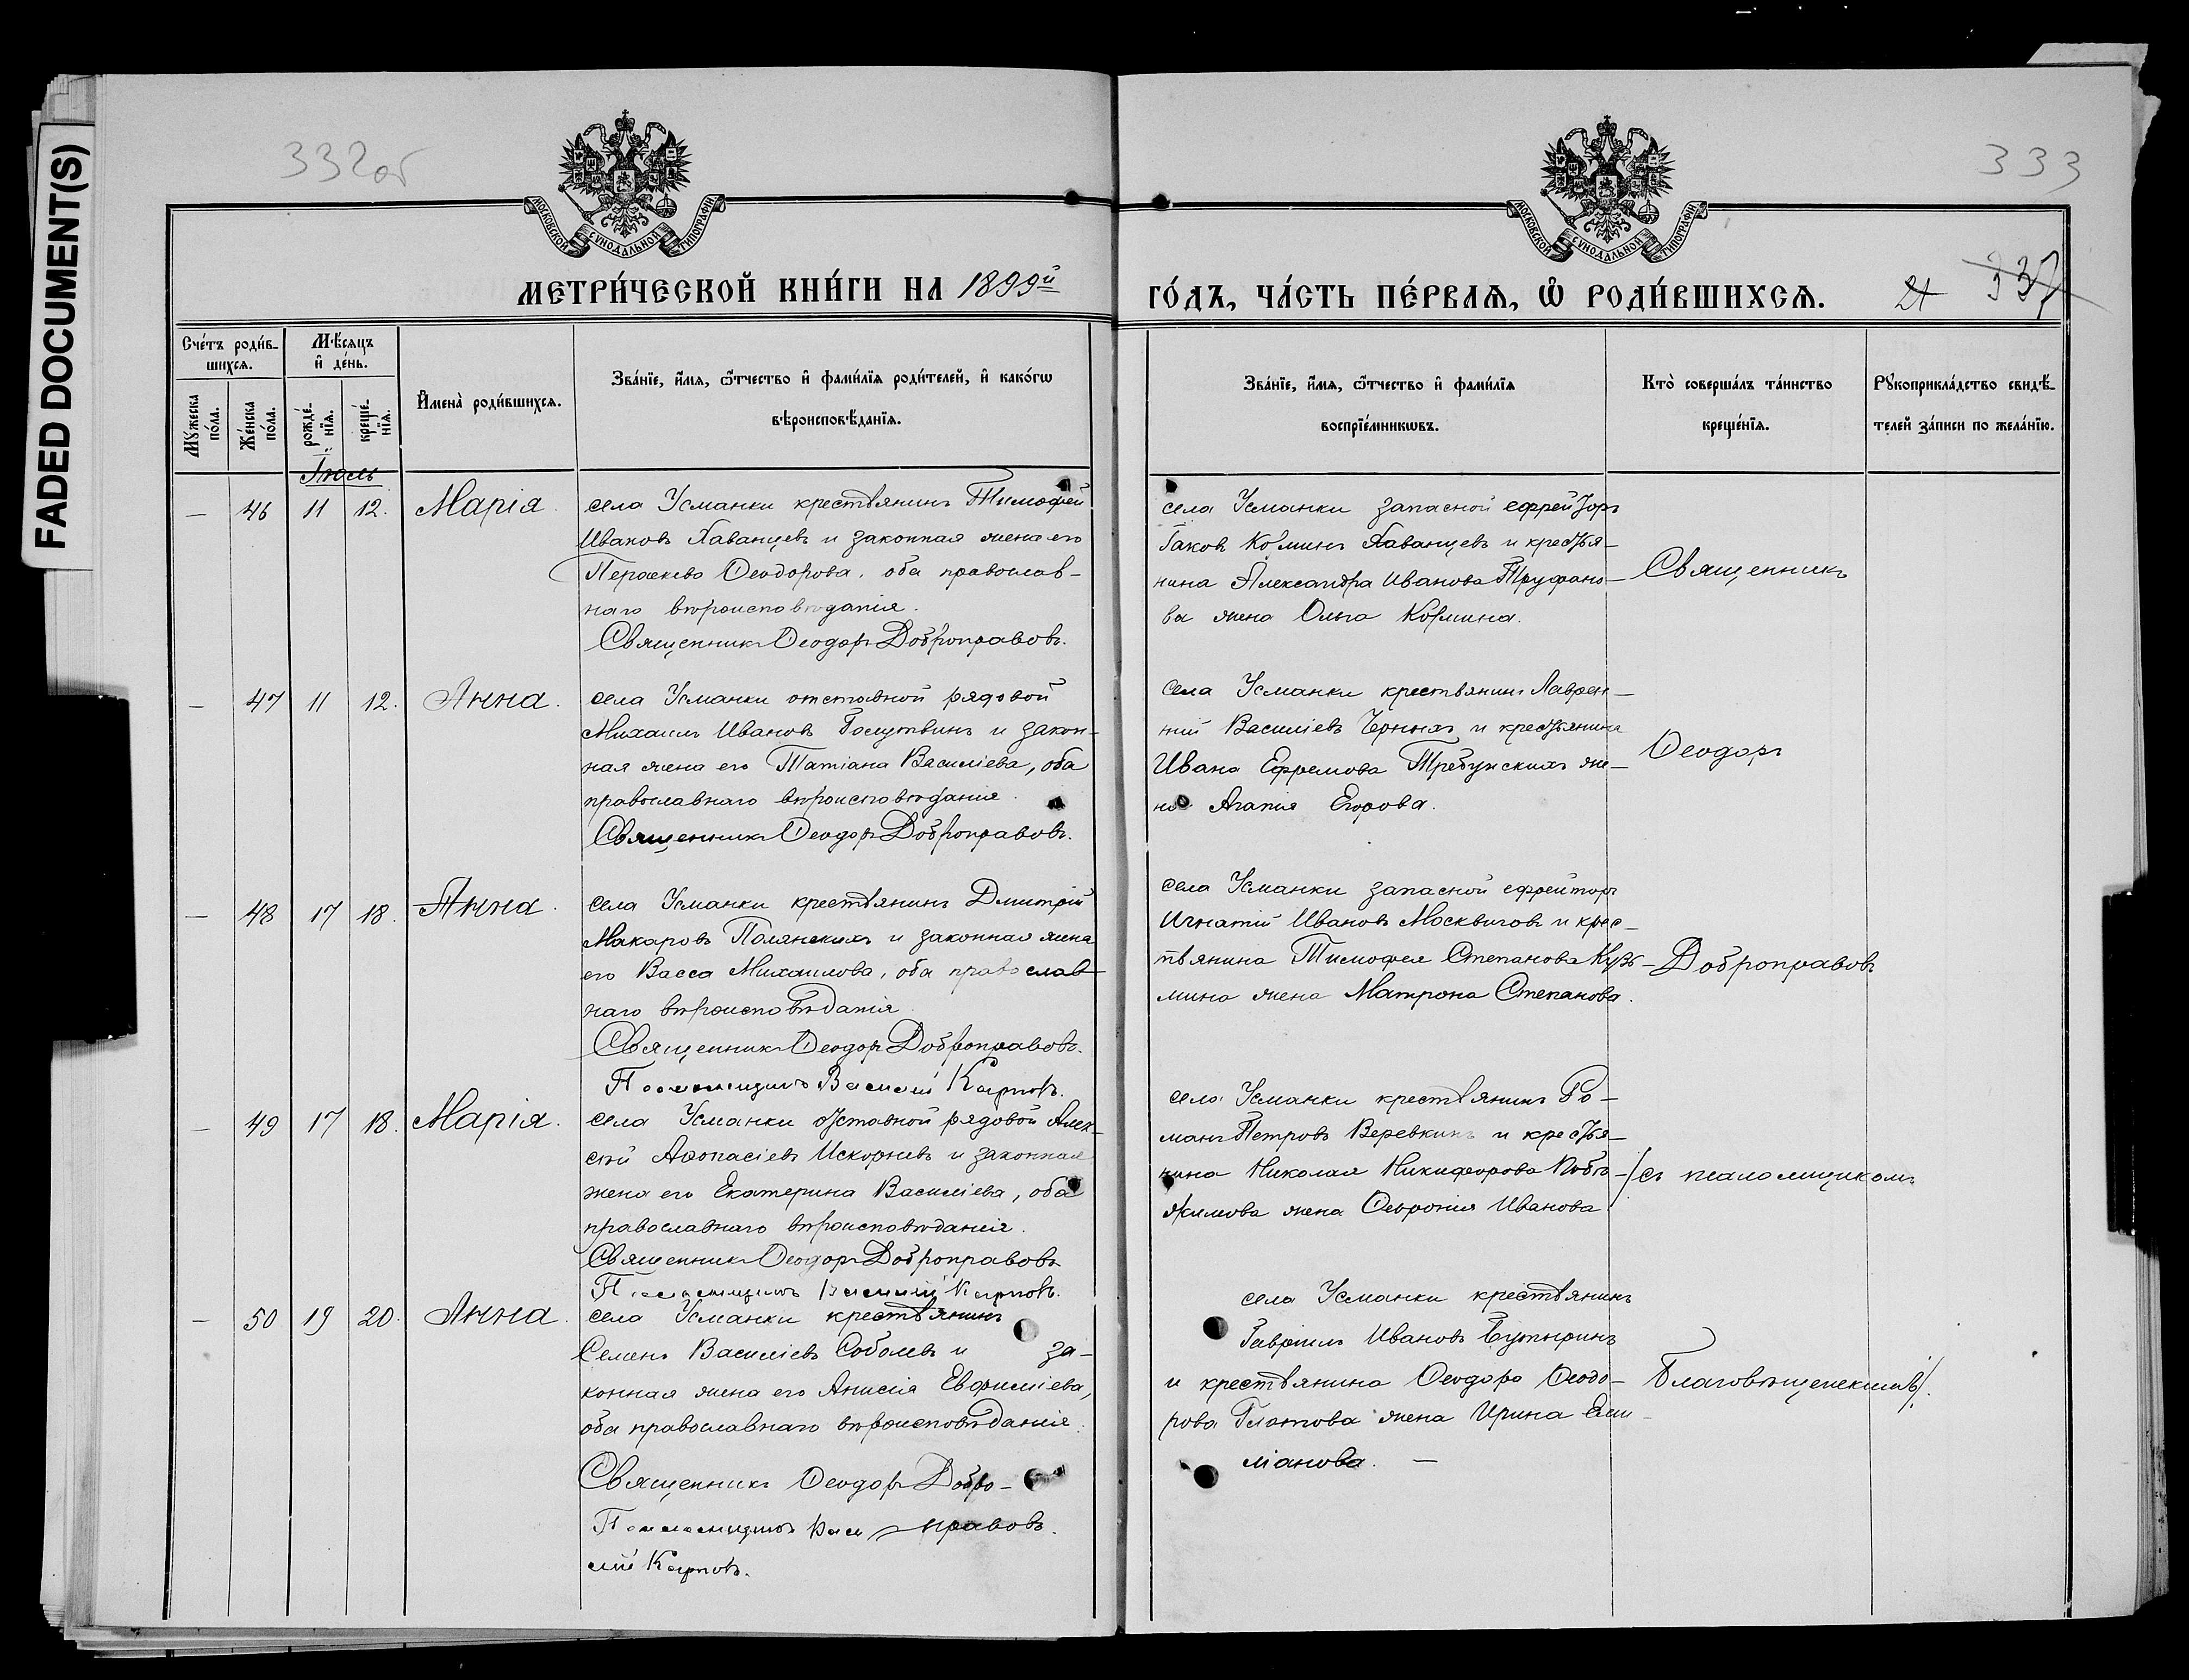 FADED DOCUMENT(S)
332об
333
МОСКОВСКОЙ СѴНОДАЛЬНОЙ ТИПОГРАФІИ
МОСКОВСКОЙ СѴНОДАЛЬНОЙ ТИПОГРАФІИ
МЕТРИ́ЧЕСКОЙ КНИ́ГИ НА 1899й
ГО́ДЪ, ЧА́СТЬ ПЕ́РВАѦ, Ѡ҆ РОДИ́ВШИХСѦ.
21 337
Сче́тъ роди́в-
шихсѧ.
Мꙋ́жеска по́ла.
Же́нска по́ла.
Мѣ́сѧцъ
и҆ де́нь.
рожде́-
нїѧ.
креще́-
нїѧ.
И҆мена̀ роди́вшихсѧ.
Зва́нїе, и҆́мѧ, ѻ҆́тчество и҆ фами́лїѧ роди́телей, и҆ како́гѡ
вѣроисповѣ́данїѧ.
Зва́нїе, и҆́мѧ, ѻ҆́тчество и҆ фами́лїѧ
воспрїе́мникѡвъ.
Кто̀ соверша́лъ та́инство
креще́нїѧ.
Рꙋкоприкла́дство свидѣ́-
телей за́писи по жела́нїю.
Іюль
— 46 11 12. Марія
села Усманки крестьянинъ Тимофей
Ивановъ Хаванцевъ и законная жена его
Параскева Ѳеодорова, оба православ-
наго вѣроисповѣданія.
Священникъ Ѳеодоръ Доброправовъ.
села Усманки запасной ефрейторъ
Іаковъ Козминъ Хаванцевъ и крестья-
нина Александра Иванова Труфано-
ва жена Ольга Козмина.
Священникъ
— 47 11 12. Анна.
села Усманки отставной рядовой
Михаилъ Ивановъ и закон-
ная жена его Татіана Василіева, оба
православнаго вѣроисповѣданія.
Священникъ Ѳеодоръ Доброправовъ.
села Усманки крестьянинъ Лаврен-
тій Василіевъ Черныхъ и крестьянина
Ивана Ефремова Требунскихъ же-
на Агапія Егорова.
Ѳеодоръ
— 48 17 18. Анна.
села Усманки крестьянинъ Димитрій
Макаровъ Полянскихъ и законная жена
его Васса Михаилова, оба православ-
наго вѣроисповѣданія.
Священникъ Ѳеодоръ Доброправовъ.
Псаломщикъ Василій Карповъ.
села Усманки запасной ефрейторъ
Игнатій Ивановъ Москвичовъ и крес-
тьянина Тимофея Степанова Кузь-
мина жена Матрона Степанова.
Доброправовъ
— 49 17 18. Марія.
села Усманки отставной рядовой Алек-
сѣй Аѳонасіевъ и законная
жена его Екатерина Василіева, оба
православнаго вѣроисповѣданія.
Священникъ Ѳеодоръ Доброправовъ
Псаломщикъ Василій Карповъ.
села Усманки крестьянинъ Ро-
манъ Петровъ Веревкинъ и крестья-
нина Николая Никифорова
жена Ѳеѳронія Иванова
/съ псаломщикомъ
— 50 19 20. Анна.
села Усманки крестьянинъ
Семенъ Василіевъ Соболевъ и за-
конная жена его Анисія Евфиміева,
оба православнаго вѣроисповѣданія.
Священникъ Ѳеодоръ Добро-
правовъ.
Псаломщикъ Васи
лій Карповъ.
села Усманки крестьянинъ
Гавріилъ Ивановъ Бутыринъ
и крестьянина Ѳеодора Ѳеодо-
рова Глотова жена Ирина Еми-
ліанова. —
Благовѣщенскимъ/.